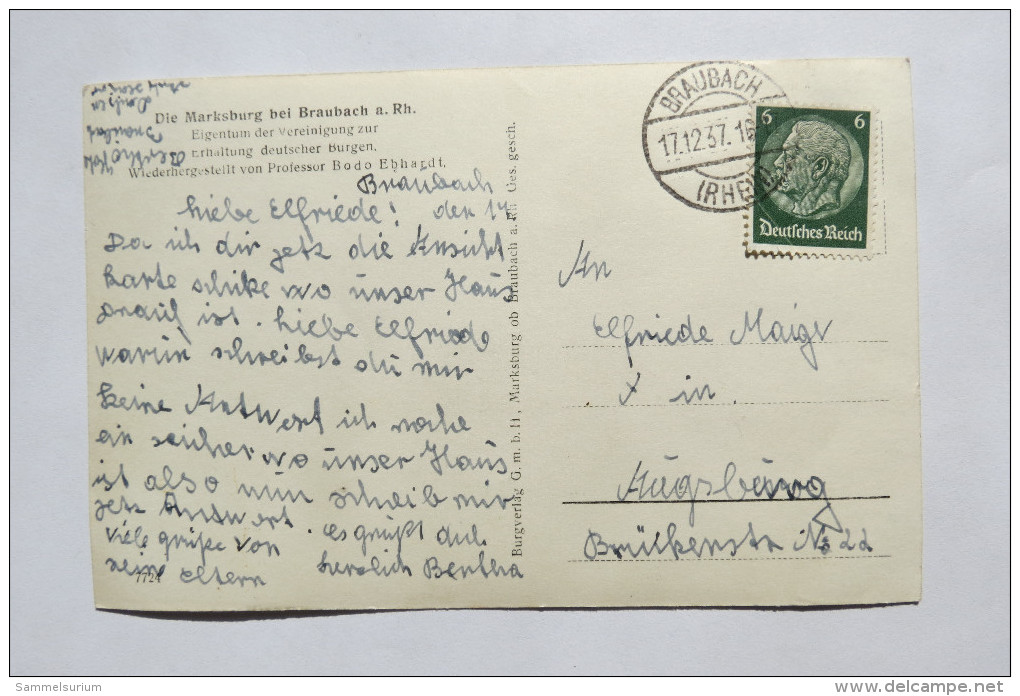 Die Marksburg bei Braubach a. Rh.
Eigentum der Vereinigung zur
Erhaltung deutscher Burgen.
Wiederhergestellt von Professor Bodo Ebhardt.
Braubach
Liebe Elfriede! den 17
Da ich dir jetz die Ansicht
karte schike wo unser Haus
drauf ist. Liebe Elfriede
warum schreibst du mir
keine Antwort ich mache
ein zeicher wo unser Haus
ist also nun schreib mir
jetz Antwort. es grüßt dich
viele grüße von
herzlich Bertha
eltern
7724
Burgverlag G. m. b. H., Marksburg ob Braubach a. Rh. Ges. gesch.
BRAUBACH
17.12.37.
(RHEIN)
6 6
Deutsches Reich
An
Elfriede
X in
Augsburg
No 22
Sammelsurium
delcampe.net